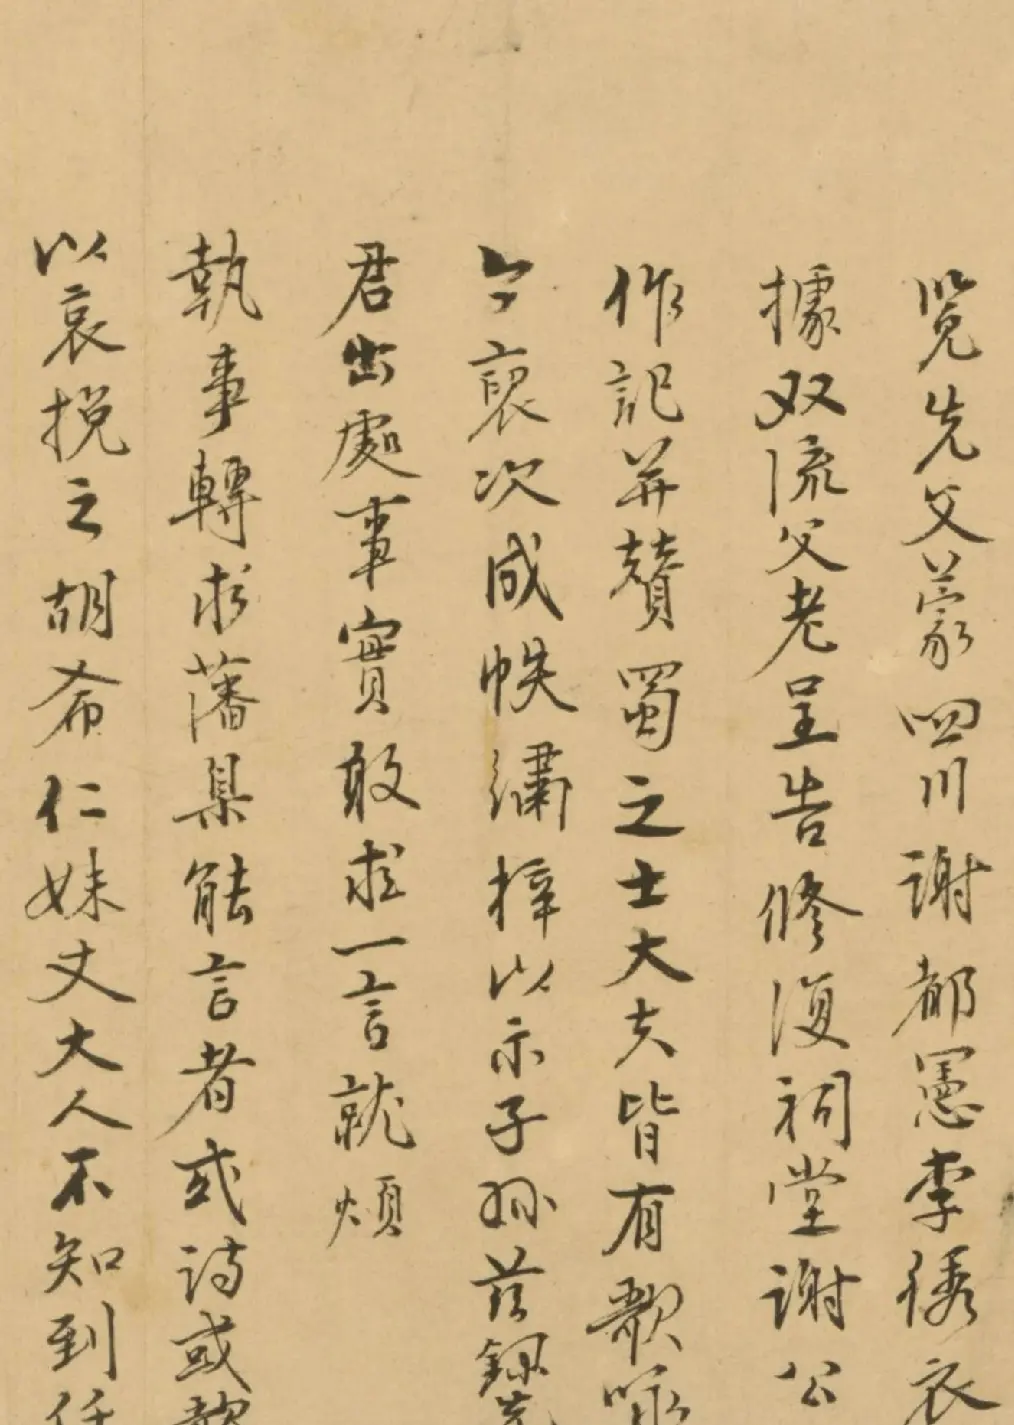 览先父蒙四川谢都憲李绣衣
據双流父老呈告修復祠堂谢公
作記并賛蜀之士大夫皆有歌咏
今裒次成帙繡梓以示子孙茲録先
君出處事實敢求一言就煩
執事轉求藩臬能言者或诗或歌
以哀挽之胡希仁妹丈大人不知到任